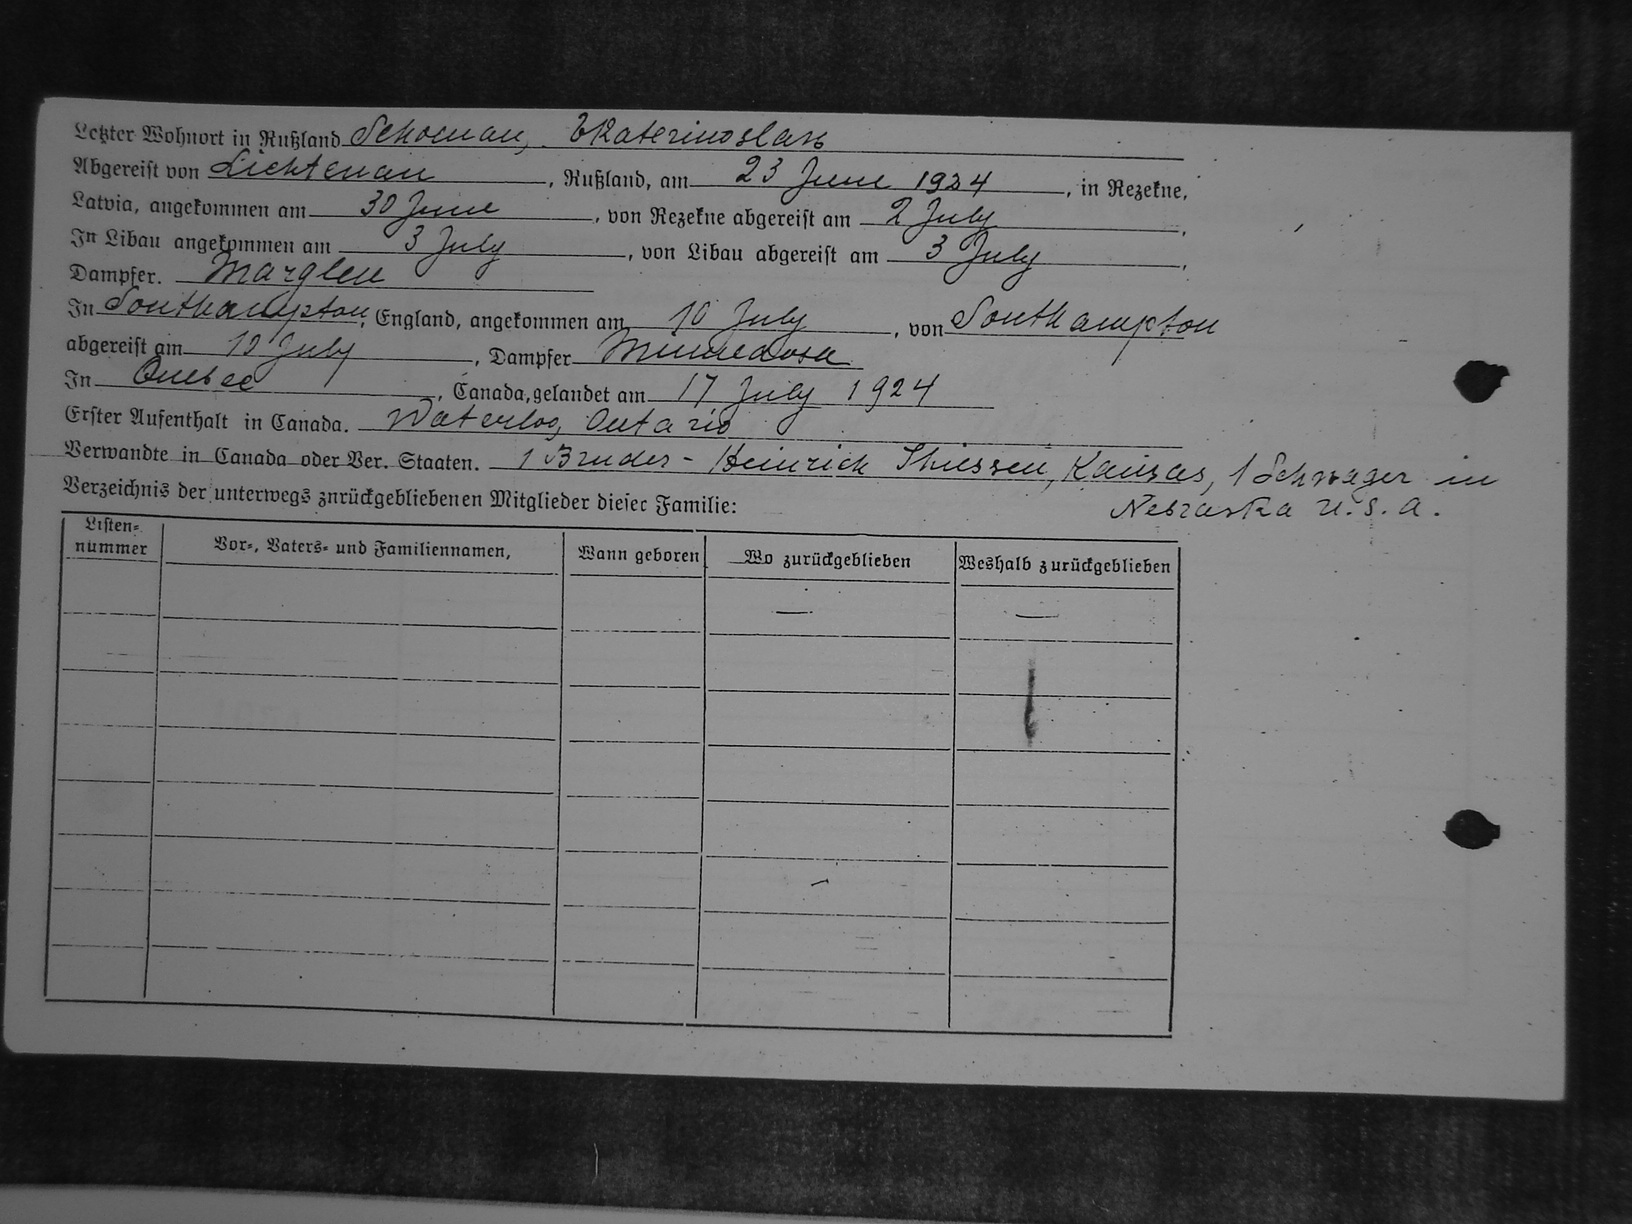 Letzter Wohnort in Rußland Schoenau, Ekaterinoslav
Abgereist von Lichtenau, Rußland, am 23 June 1924, in Rezekne,
Latvia, angekommen am 30 June, von Rezekne abgereist am 2 July,
In Libau angekommen am 3 July, von Libau abgereist am 3 July,
Dampfer. Marglen
In Southampton, England, angekommen am 10 July, von Southampton
abgereist am 10 July, Dampfer Minnedosa
In Quebec, Canada, gelandet am 17 July 1924
Erster Aufenthalt in Canada. Waterloo, Ontario
Verwandte in Canada oder Ver. Staaten. 1 Bruder - Heinrich Thiessen, Kansas, 1 Schwager in
Nebraska U.S.A.
Verzeichnis der unterwegs znrückgebliebenen Mitglieder dieser Familie:
Listen-
nummer
Vor-, Vaters- und Familiennamen,
Wann geboren
Wo zurückgeblieben
Weshalb zurückgeblieben
— —